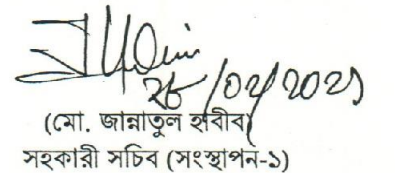 ২৮/০২/২০২১
(মো. জান্নাতুল হাবীব)
সহকারী সচিব (সংস্থাপন-১)